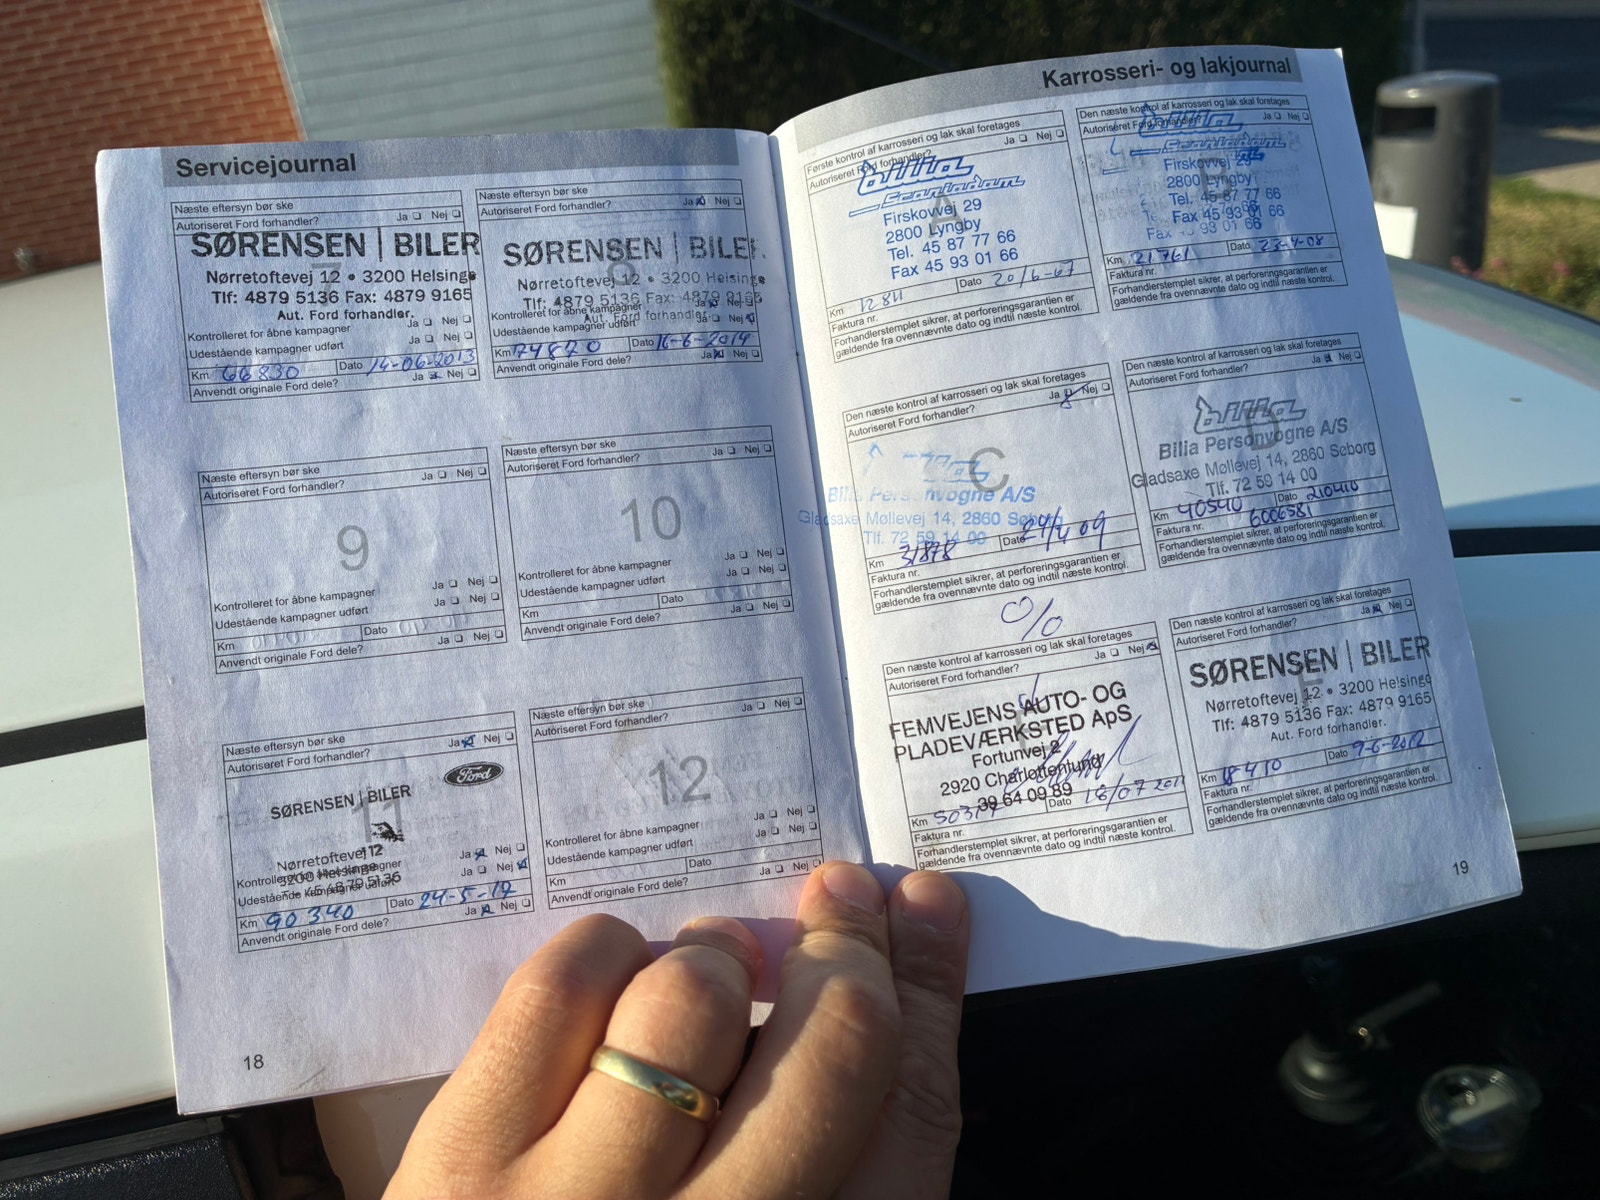 Servicejournal
Næste eftersyn bør ske
Autoriseret Ford forhandler? Ja Nej
SØRENSEN | BILER
Nørretoftevej 12 • 3200 Helsinge
Tlf: 4879 5136 Fax: 4879 9165
Aut. Ford forhandler.
Kontrolleret for åbne kampagner Ja Nej
Udestående kampagner udført Ja Nej
Km 66830 Dato 14-06-2013
Anvendt originale Ford dele? Ja Nej
Næste eftersyn bør ske
Autoriseret Ford forhandler? Ja Nej
8
SØRENSEN | BILER
Nørretoftevej 12 • 3200 Helsinge
Tlf: 4879 5136 Fax: 4879 9165
Aut. Ford forhandler.
Kontrolleret for åbne kampagner Ja Nej
Udestående kampagner udført Ja Nej
Km 74870 Dato 16-6-2014
Anvendt originale Ford dele? Ja Nej
Næste eftersyn bør ske
Autoriseret Ford forhandler? Ja Nej
9
Kontrolleret for åbne kampagner Ja Nej
Udestående kampagner udført Ja Nej
Km Dato
Anvendt originale Ford dele? Ja Nej
Næste eftersyn bør ske
Autoriseret Ford forhandler? Ja Nej
10
Kontrolleret for åbne kampagner Ja Nej
Udestående kampagner udført Ja Nej
Km Dato
Anvendt originale Ford dele? Ja Nej
Næste eftersyn bør ske
Autoriseret Ford forhandler? Ja Nej
Ford
SØRENSEN | BILER
11
Nørretoftevej 12
3200 Helsinge
Kontrolleret for åbne kampagner Ja Nej
Tlf. 45 48 79 5136
Udestående kampagner udført Ja Nej
Km 90340 Dato 24-5-17
Anvendt originale Ford dele? Ja Nej
Næste eftersyn bør ske
Autoriseret Ford forhandler? Ja Nej
12
Kontrolleret for åbne kampagner Ja Nej
Udestående kampagner udført Ja Nej
Km Dato
Anvendt originale Ford dele? Ja Nej
18
Karrosseri- og lakjournal
Første kontrol af karrosseri og lak skal foretages
Autoriseret Ford forhandler? Ja Nej
A
bilia
Scaniadam
Firskovvej 29
2800 Lyngby
Tel. 45 87 77 66
Fax 45 93 01 66
Km 12811 Dato 20/6-07
Faktura nr.
Forhandlerstemplet sikrer, at perforeringsgarantien er
gældende fra ovennævnte dato og indtil næste kontrol.
Den næste kontrol af karrosseri og lak skal foretages
Autoriseret Ford forhandler? Ja Nej
bilia
Scaniadam
Firskovvej 29
2800 Lyngby
Tel. 45 87 77 66
Fax 45 93 01 66
Km 21761 Dato 23-4-08
Faktura nr.
Forhandlerstemplet sikrer, at perforeringsgarantien er
gældende fra ovennævnte dato og indtil næste kontrol.
Den næste kontrol af karrosseri og lak skal foretages
Autoriseret Ford forhandler? Ja Nej
C
Bilia Personvogne A/S
Gladsaxe Møllevej 14, 2860 Søborg
Tlf. 72 59 14 00
Km 31878 Dato 24/4 09
Faktura nr.
Forhandlerstemplet sikrer, at perforeringsgarantien er
gældende fra ovennævnte dato og indtil næste kontrol.
Den næste kontrol af karrosseri og lak skal foretages
Autoriseret Ford forhandler? Ja Nej
D
bilia
Bilia Personvogne A/S
Gladsaxe Møllevej 14, 2860 Søborg
Tlf. 72 59 14 00
Km 40540 Dato 210410
Faktura nr. 6006581
Forhandlerstemplet sikrer, at perforeringsgarantien er
gældende fra ovennævnte dato og indtil næste kontrol.
Den næste kontrol af karrosseri og lak skal foretages
Autoriseret Ford forhandler? Ja Nej
FEMVEJENS AUTO- OG
PLADEVÆRKSTED ApS
Fortunvej 2
2920 Charlottenlund
39 64 09 89
Km Dato 18/07 2011
Faktura nr.
Forhandlerstemplet sikrer, at perforeringsgarantien er
gældende fra ovennævnte dato og indtil næste kontrol.
Den næste kontrol af karrosseri og lak skal foretages
Autoriseret Ford forhandler? Ja Nej
SØRENSEN | BILER
Nørretoftevej 12 • 3200 Helsinge
Tlf: 4879 5136 Fax: 4879 9165
Aut. Ford forhandler.
Km Dato 9-6-2012
Faktura nr.
Forhandlerstemplet sikrer, at perforeringsgarantien er
gældende fra ovennævnte dato og indtil næste kontrol.
19